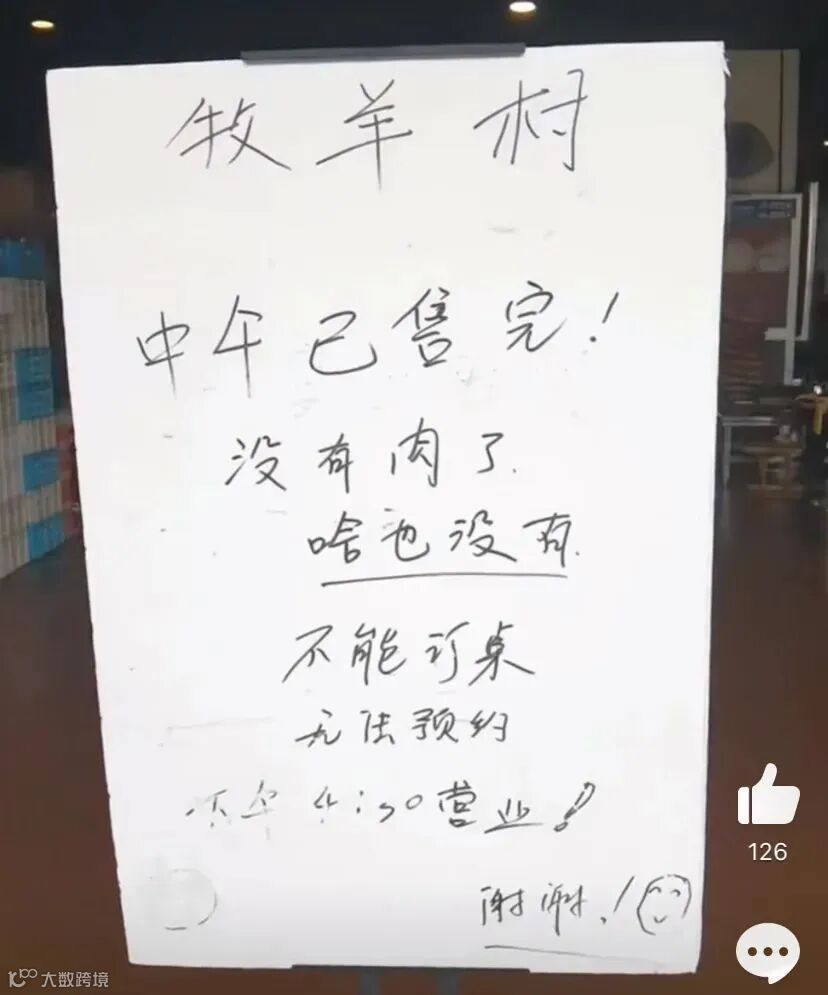 牧羊村
中午已售完！
没有肉了.
啥也没有.
不能订桌
无法预约
下午4:30营业！
谢谢.！
126
大数跨境